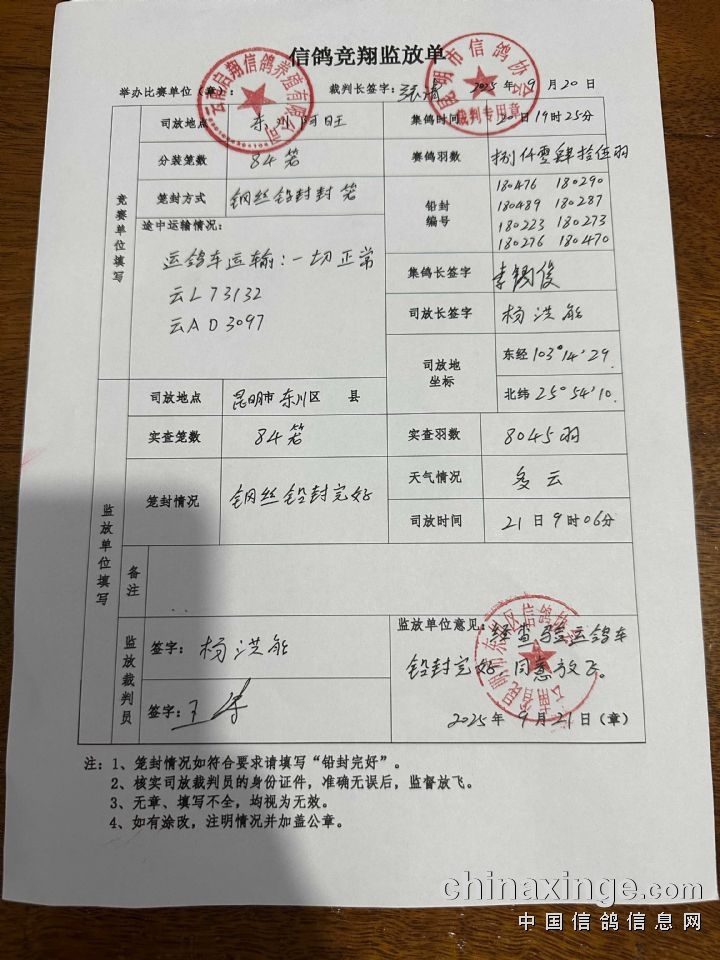 信鸽竞翔监放单
举办比赛单位(章): 裁判长签字: 2025 年 9 月 20 日
云南启翔信鸽养殖有限公司
昆明市信鸽协会
裁判专用章
竞赛单位填写
司放地点 东川阿旺 集鸽时间 20 日 19 时 25 分
分装笼数 84笼 赛鸽羽数 捌仟零肆拾伍羽
笼封方式 钢丝铅封封笼 铅封编号 180476 180290
180489 180287
180223 180273
180276 180470
途中运输情况:
运鸽车运输:一切正常
云L73132
云AD3097
集鸽长签字 李锡俊
司放长签字 杨洪能
司放地坐标 东经 103°14'29
北纬 25°54'10.
监放单位填写
司放地点 昆明市 东川区 县
实查笼数 84笼 实查羽数 8045羽
笼封情况 钢丝铅封完好 天气情况 多云
司放时间 21 日 9 时 06 分
备注
监放裁判员
签字: 杨洪能
签字:
监放单位意见: 经查验运鸽车
铅封完好 同意放飞。
2025 年 9 月 21 日(章)
注:1、笼封情况如符合要求请填写“铅封完好”。
2、核实司放裁判员的身份证件,准确无误后,监督放飞。
3、无章、填写不全,均视为无效。
4、如有涂改,注明情况并加盖公章。
chinaxinge.com
中国信鸽信息网